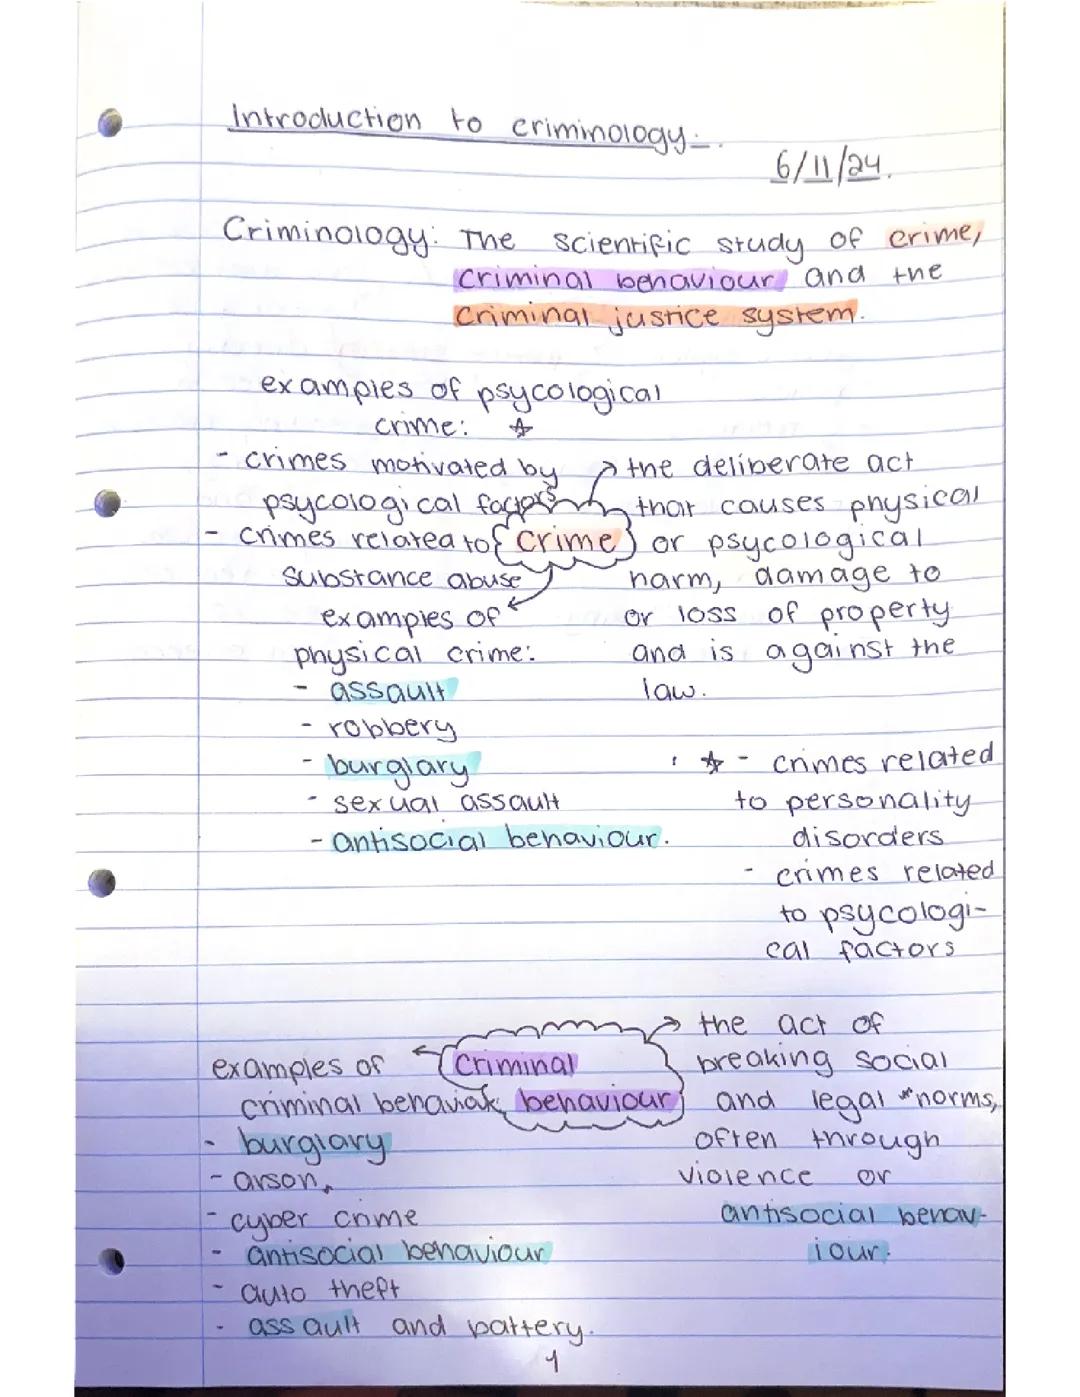 Introduction to criminology.
6/11/24.
Criminology: The scientific study of crime,
criminal behaviour and the
criminal justice system.
examples of psycological
crime: ☆
- crimes motivated by
psycological factors
- crimes related to
substance abuse
examples of
physical crime:
- assault
- robbery
- burglary
- sexual assault
- antisocial behaviour.
crime
the deliberate act
that causes physical
or psycological
harm, damage to
or loss of property
and is against the
law.
☆ - crimes related
to personality
disorders
- crimes related
to psycologi-
cal factors
criminal
behaviour
the act of
breaking social
and legal norms,
often through
violence or
antisocial behav-
iour.
examples of
criminal behaviour
- burglary
- arson
- cyber crime
- antisocial behaviour
- auto theft
- assault and battery.
1